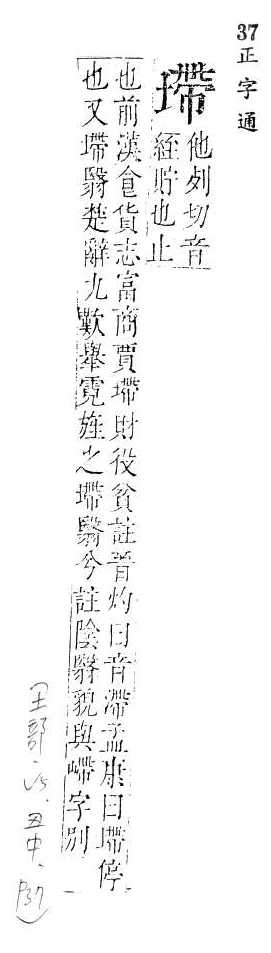 37正字通
墆
他列切音
絰貯也止
也前漢食貨志富商賈墆財役貧註晉灼曰音滯孟康曰墆停
也又墆翳楚辭九歎舉霓旌之墆翳兮註陰翳貌與嵽字別
(土部、丑中、P37)